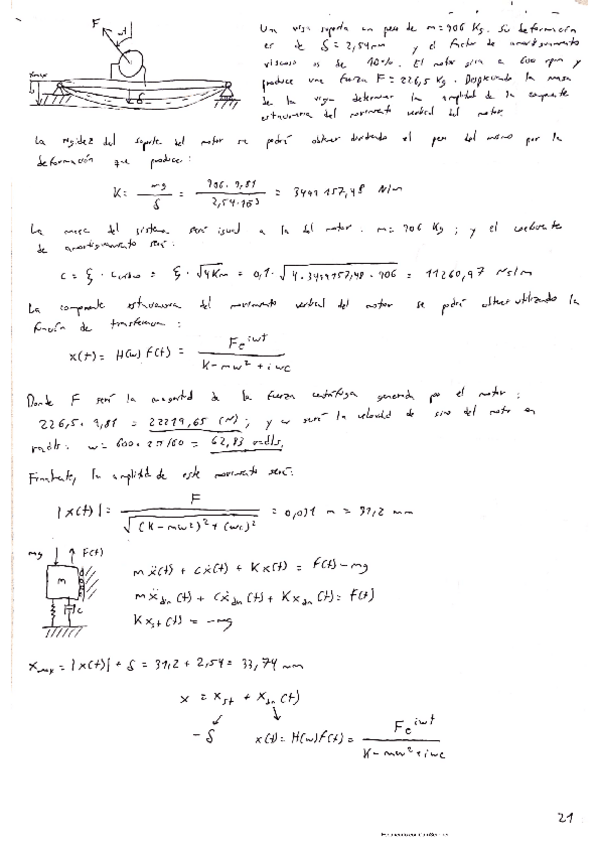 F
wt
xmax
δ
Una viga soporta un peso de m = 906 Kg. Su deformación
es de δ = 2,54 mm y el factor de amortiguamiento
viscoso es de 10%. El motor gira a 600 rpm y
produce una fuerza F = 226,5 Kg. Despreciando la masa
de la viga determinar la amplitud de la componente
estacionaria del movimiento vertical del motor.
La rigidez del soporte del motor se podrá obtener dividiendo el peso del mismo por la
deformación que produce:
K = mg / δ = 906 · 9,81 / 2,54·10³ = 3499157,48 N/m
La masa del sistema será igual a la del motor. m = 906 Kg; y el coeficiente
de amortiguamiento será:
c = ξ · ccrítico = ξ · √4Km = 0,1 · √4·3499157,48·906 = 11260,97 Ns/m
La componente estacionaria del movimiento vertical del motor se podrá obtener utilizando la
función de transferencia:
x(t) = H(w) f(t) = F e^iwt / K - mw² + iwc
Donde F será la magnitud de la fuerza centrífuga generada por el motor:
226,5 · 9,81 = 22219,65 (N); y w será la velocidad de giro del motor en
rad/s: w = 600 · 2π/60 = 62,83 rad/s.
Finalmente, la amplitud de este movimiento será:
|x(t)| = F / √(K - mw²)² + (wc)² = 0,031 m = 31,2 mm
mg
F(t)
m
c
mẍ(t) + cẋ(t) + Kx(t) = F(t) - mg
mẍdin(t) + cẋdin(t) + Kxdin(t) = F(t)
Kxst(t) = -mg
xmax = |x(t)| + δ = 31,2 + 2,54 = 33,74 mm
x = xst + xdin(t)
-δ x(t) = H(w)F(t) = F e^iwt / K - mw² + iwc
21